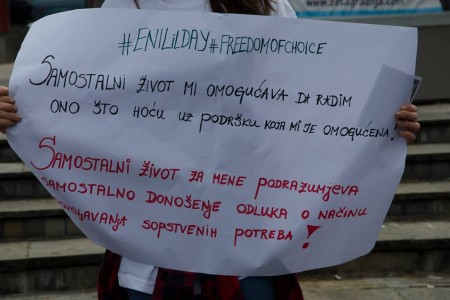 #ENILILDAY #FREEDOMOFCHOICE
SAMOSTALNI ŽIVOT MI OMOGUĆAVA DA RADIM
ONO ŠTO HOĆU UZ PODRŠKU KOJA MI JE OMOGUĆENA!
SAMOSTALNI ŽIVOT ZA MENE PODRAZUMJEVA
SAMOSTALNO DONOŠENJE ODLUKA O NAČINU
SOPSTVENIH POTREBA!